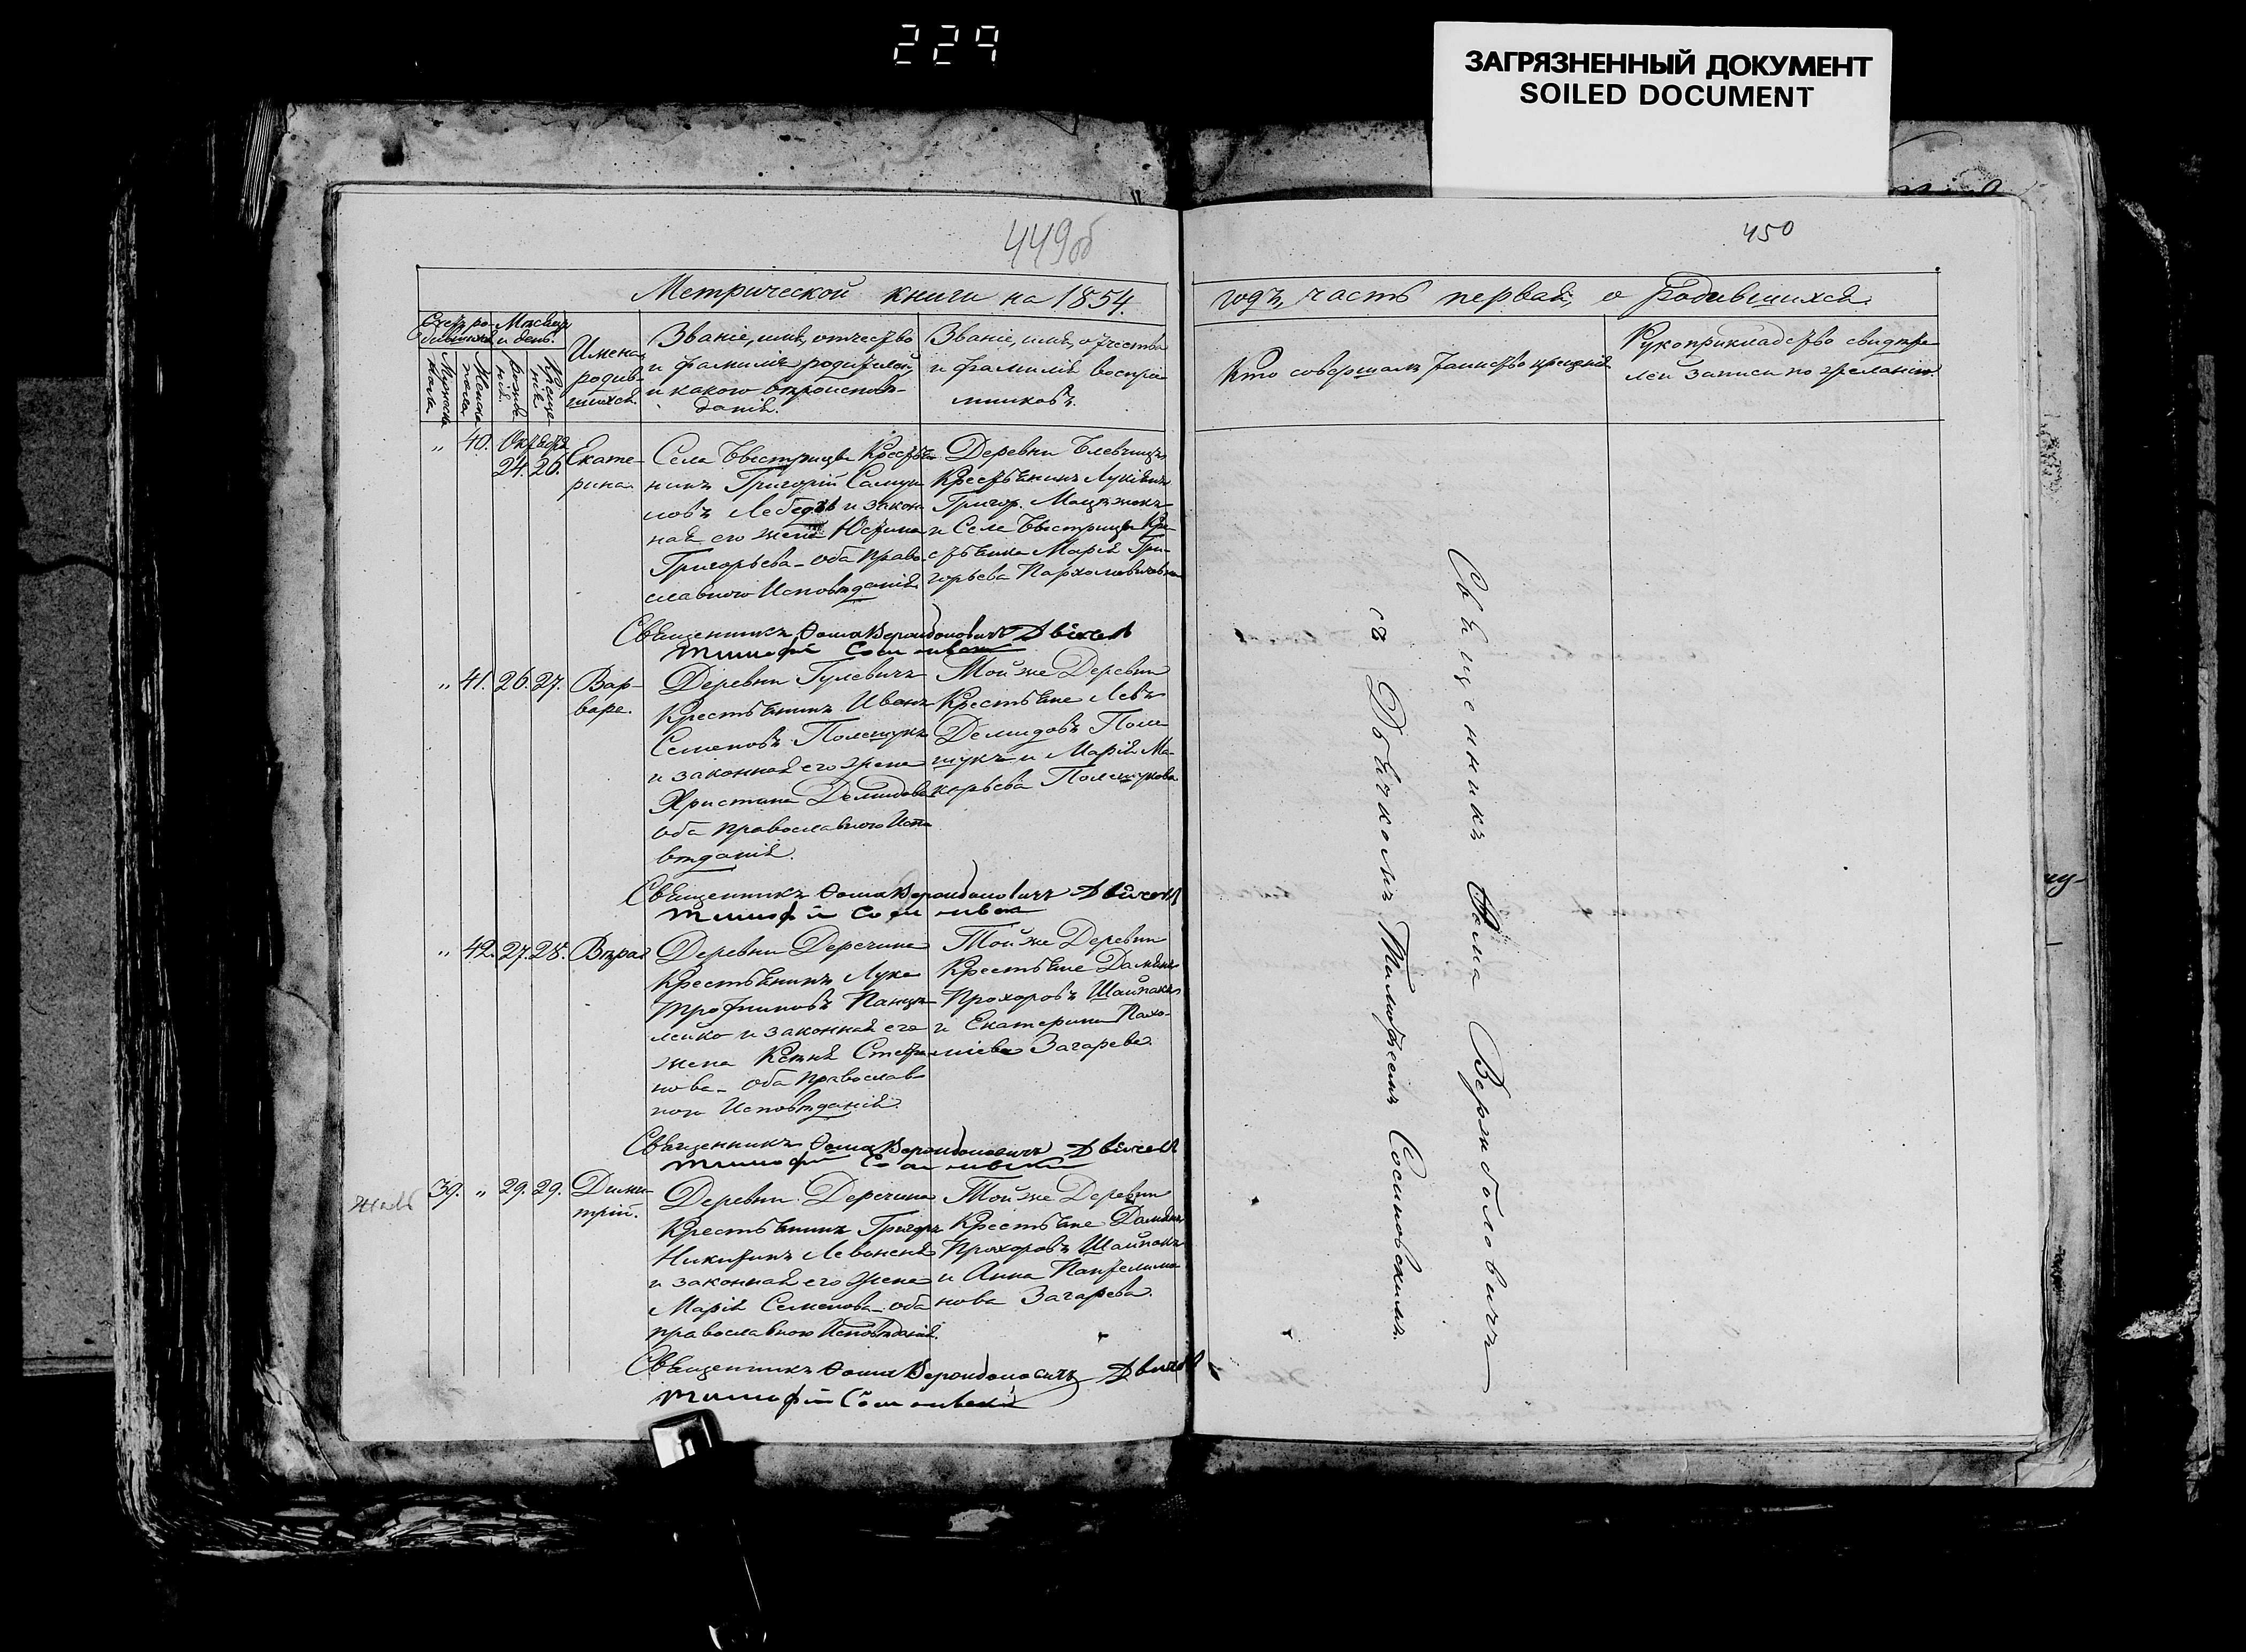 229
ЗАГРЯЗНЕННЫЙ ДОКУМЕНТ
SOILED DOCUMENT
449об
450
Метрической книги на 1854.
годъ, часть первая, о родившихся.
Счетъ ро-
дившихся
Мѣсяцъ
и день.
Мужеска
пола.
Женска
пола.
рожде-
нія.
Креще-
нія
Имена
родив-
шихся.
Званіе, имя, отчество
и фамилія родителей
и какого вѣроисповѣ-
данія.
Званіе, имя, отчество
и фамилія воспріе-
мниковъ.
Кто совершалъ таинство крещенія
Рукоприкладство свидѣте
лей записи по желанію.
„ 40. Октября
24. 26.
Екате-
рина.
Села Быстрицы Крестья-
нинъ Григорій Самуи
ловъ и закон
ная его жена Юстина
Григорьева - оба право
славного Исповѣданія
Деревни
Крестьянинъ
Григор.
и Села Быстрицы Кре-
стьянка Марія Гри-
горьева
Священникъ Ѳома Верондоловичъ Дьячекъ
Тимофѣй
„ 41. 26. 27. Вар-
вара.
Деревни Гулевичъ
Крестьянинъ Иванъ
Семеновъ Полещукъ
и законная его жена
Христина Демидова
оба православного Испо
вѣданія.
Той же Деревни
Крестьяне Левъ
Демидовъ Поле
щукъ и Марія Ма-
карьева Полещукова
Священникъ Ѳома Верондоловичъ Дьячекъ
Тимофѣй
„ 42. 27. 28. Вѣра
Деревни Деречина
Крестьянинъ Лука
Трофимовъ Панца
лейко и законная его
жена Ксенія Стефа
нова - оба православ
ного Исповѣданія.
Той же Деревни
Крестьяне Даміанъ
Прохоровъ Шайпакъ
и Екатерина Пахо-
міева Загарева.
Священникъ Ѳома Верондоловичъ Дьячекъ
Тимофѣй
39. „ 29. 29. Дими-
трій.
Деревни Деречина
Крестьянинъ Григор
Никитинъ
и законная его жена
Марія Семенова - оба
православного Исповѣданія.
Той же Деревни
Крестьяне Даміанъ
Прохоровъ Шайпакъ
и Анна Пантелимо
нова Загарева.
Священникъ Ѳома Верондоловичъ Дьячекъ
Тимофѣй
Священникъ Ѳома
съ Дьячкомъ Тимофеемъ Сосиновскимъ.